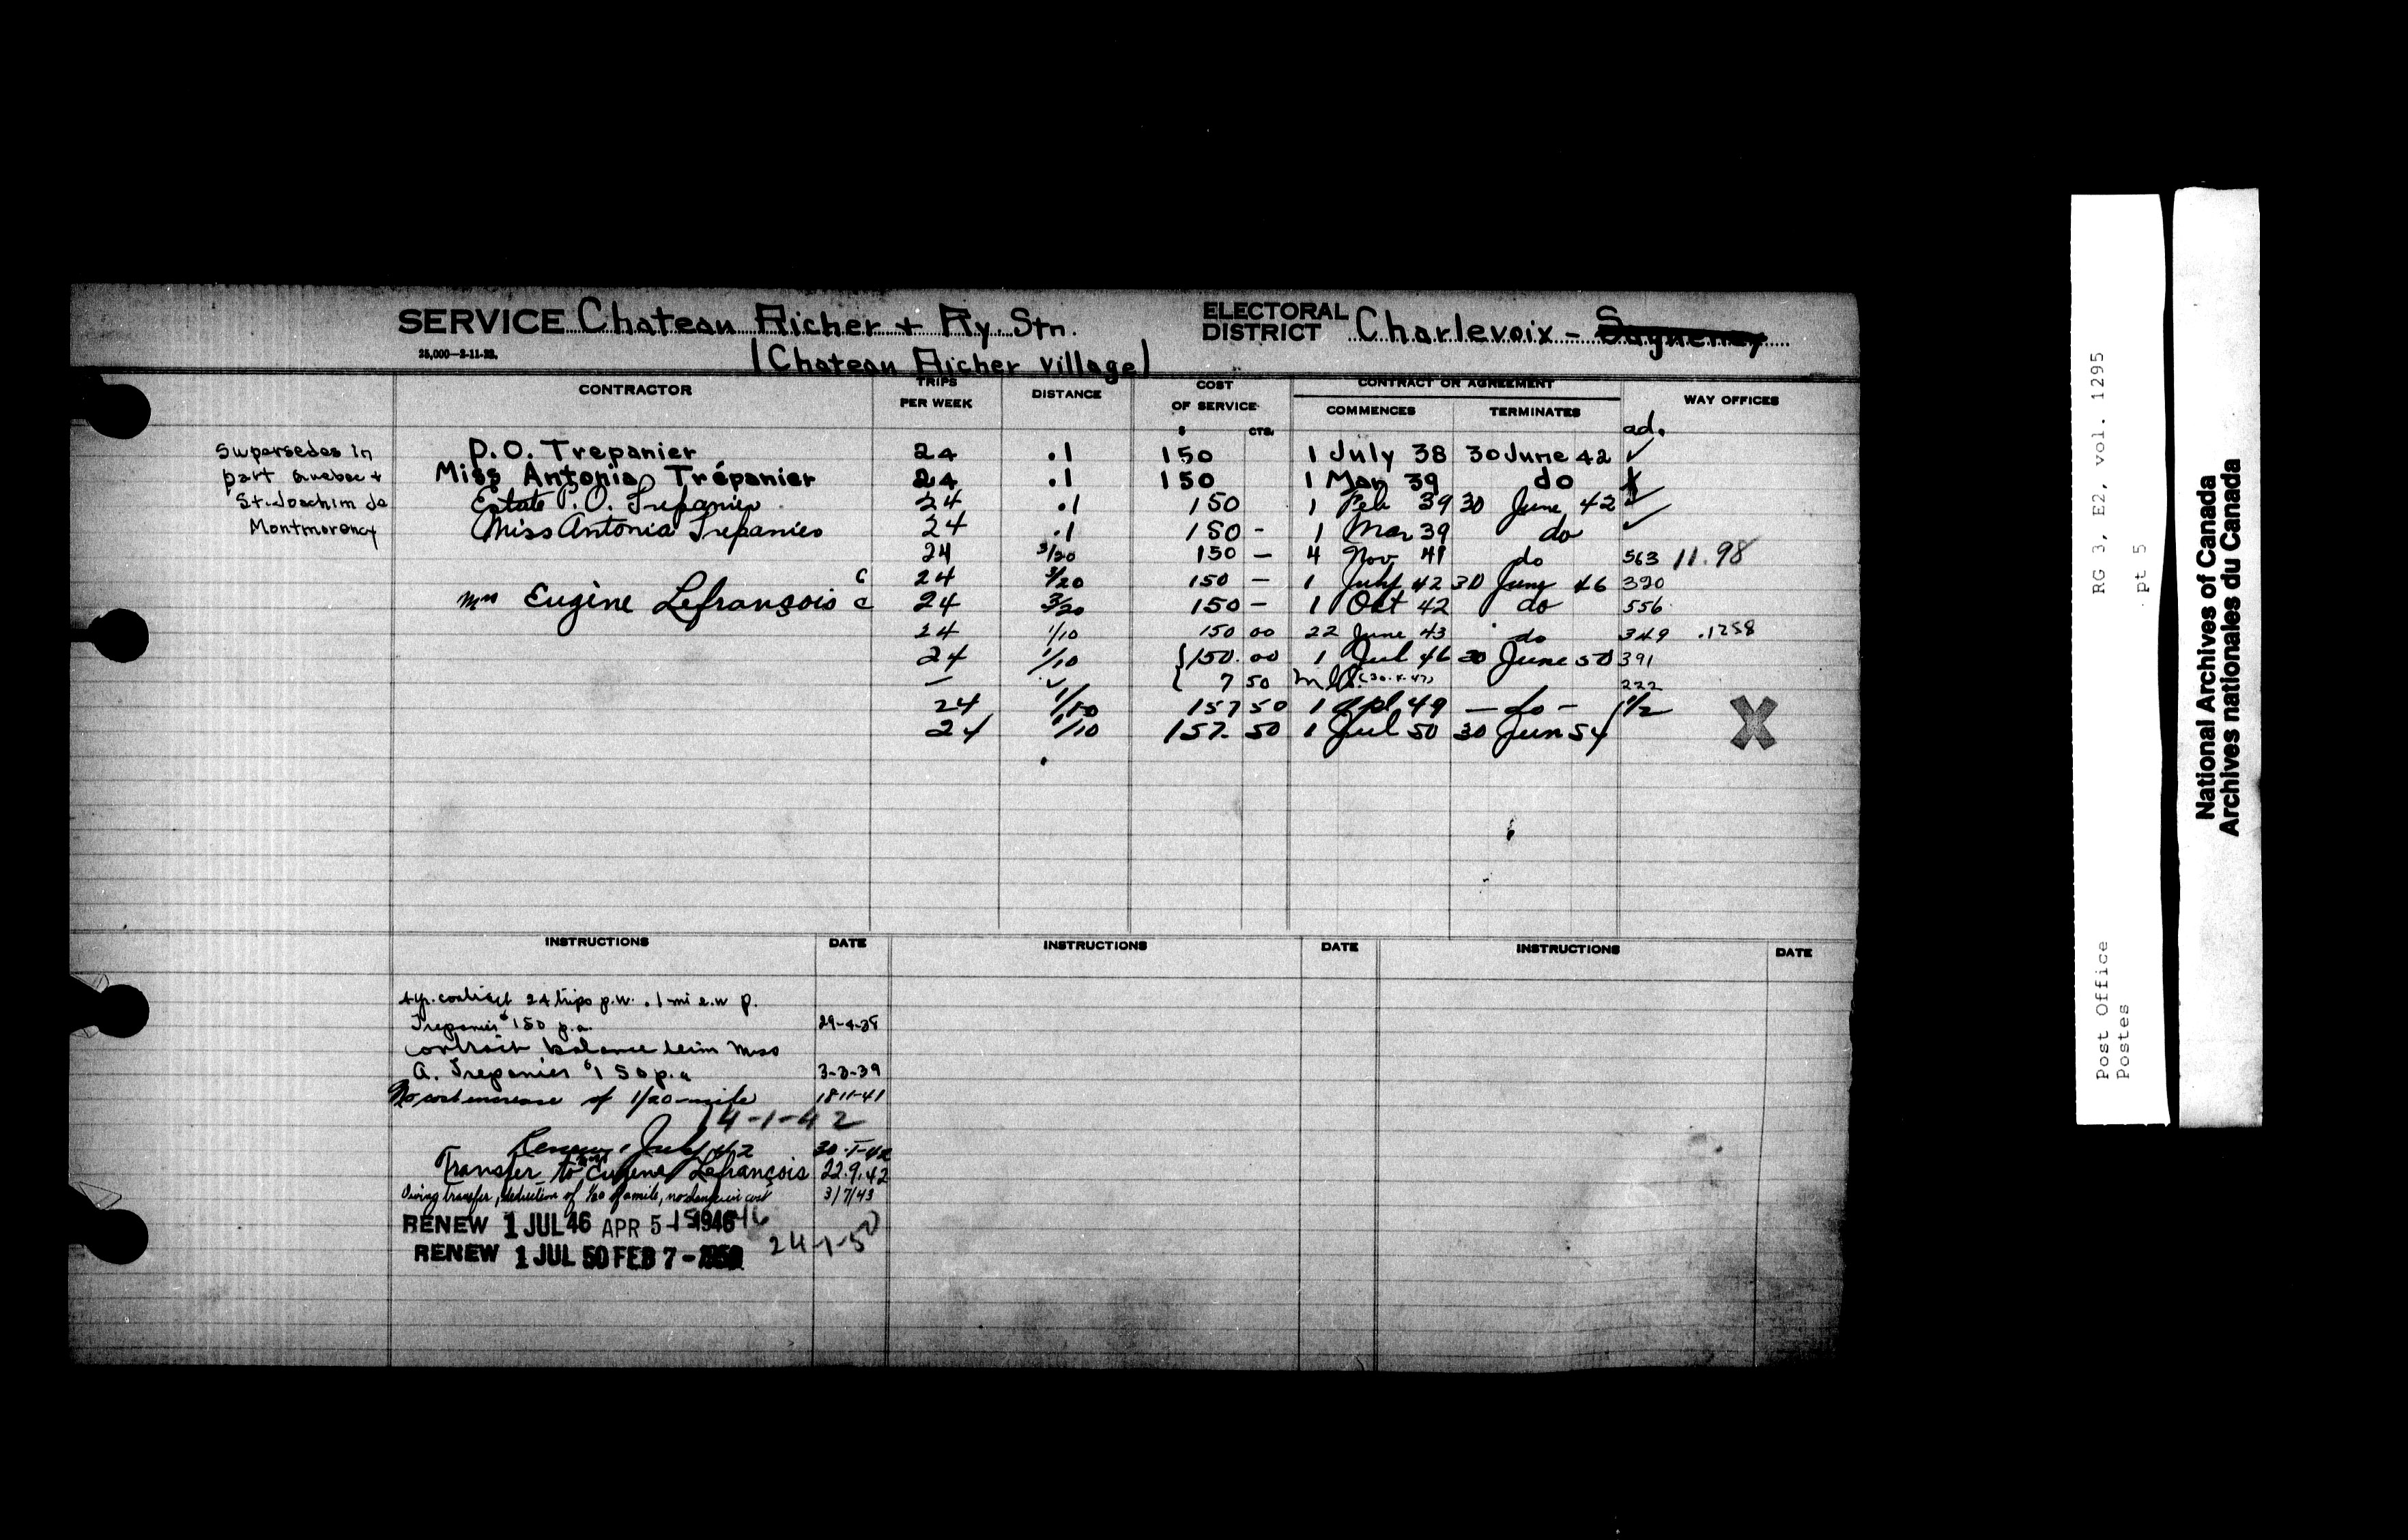 SERVICE Chateau Richer + Ry. Stn.
(Chateau Richer Village)
25,000—2-11-32.
ELECTORAL DISTRICT Charlevoix -
CONTRACTOR TRIPS PER WEEK DISTANCE COST OF SERVICE CONTRACT OR AGREEMENT WAY OFFICES
COMMENCES TERMINATES
$ CTS. ad.
Supersedes in P.O. Trepanier 24 .1 150 1 July 38 30 June 42 ✓
part Quebec + Miss Antonia Trépanier 24 .1 150 1 Mar 39 do X
St. Joachim de Estate P.O. Trepanier 24 .1 150 1 Feb 39 30 June 42 ✓
Montmorency Miss Antonia Trepanier 24 .1 150 - 1 Mar 39 do ✓
24 3/20 150 — 4 Nov 41 do 563 11.98
c 24 3/20 150 — 1 July 42 30 June 46 390
Mrs Eugène Lefrançois c 24 3/20 150 — 1 Oct 42 do 556
24 1/10 150 00 22 June 43 do 349 .1258
24 1/10 {150.00 1 Jul 46 30 June 50 391
— ✓ { 7 50 222
24 1/10 157 50 1 Apl 49 — do —
24 1/10 157. 50 1 Jul 50 30 Jun 54
X
INSTRUCTIONS DATE INSTRUCTIONS DATE INSTRUCTIONS DATE
4 yr. contract 24 trips p.w. .1 mi e.w P.
Trepanier $150 p.a.
contract balance term Miss
A. Trepanier $150 p.a 3-3-39
No cost increase of 1/20 mile 18-11-41
14-1-42
Renew 1 July 42
Transfer to Mrs Eugene Lefrançois 22.9.42
Owing transfer, deduction of 1/20 of a mile, no change in cost 3/7/43
RENEW 1 JUL 46 APR 5 - 1946
RENEW 1 JUL 50 FEB 7 - 1950 24-1-50
RG 3, E2, vol. 1295
pt 5
Post Office
Postes
National Archives of Canada
Archives nationales du Canada